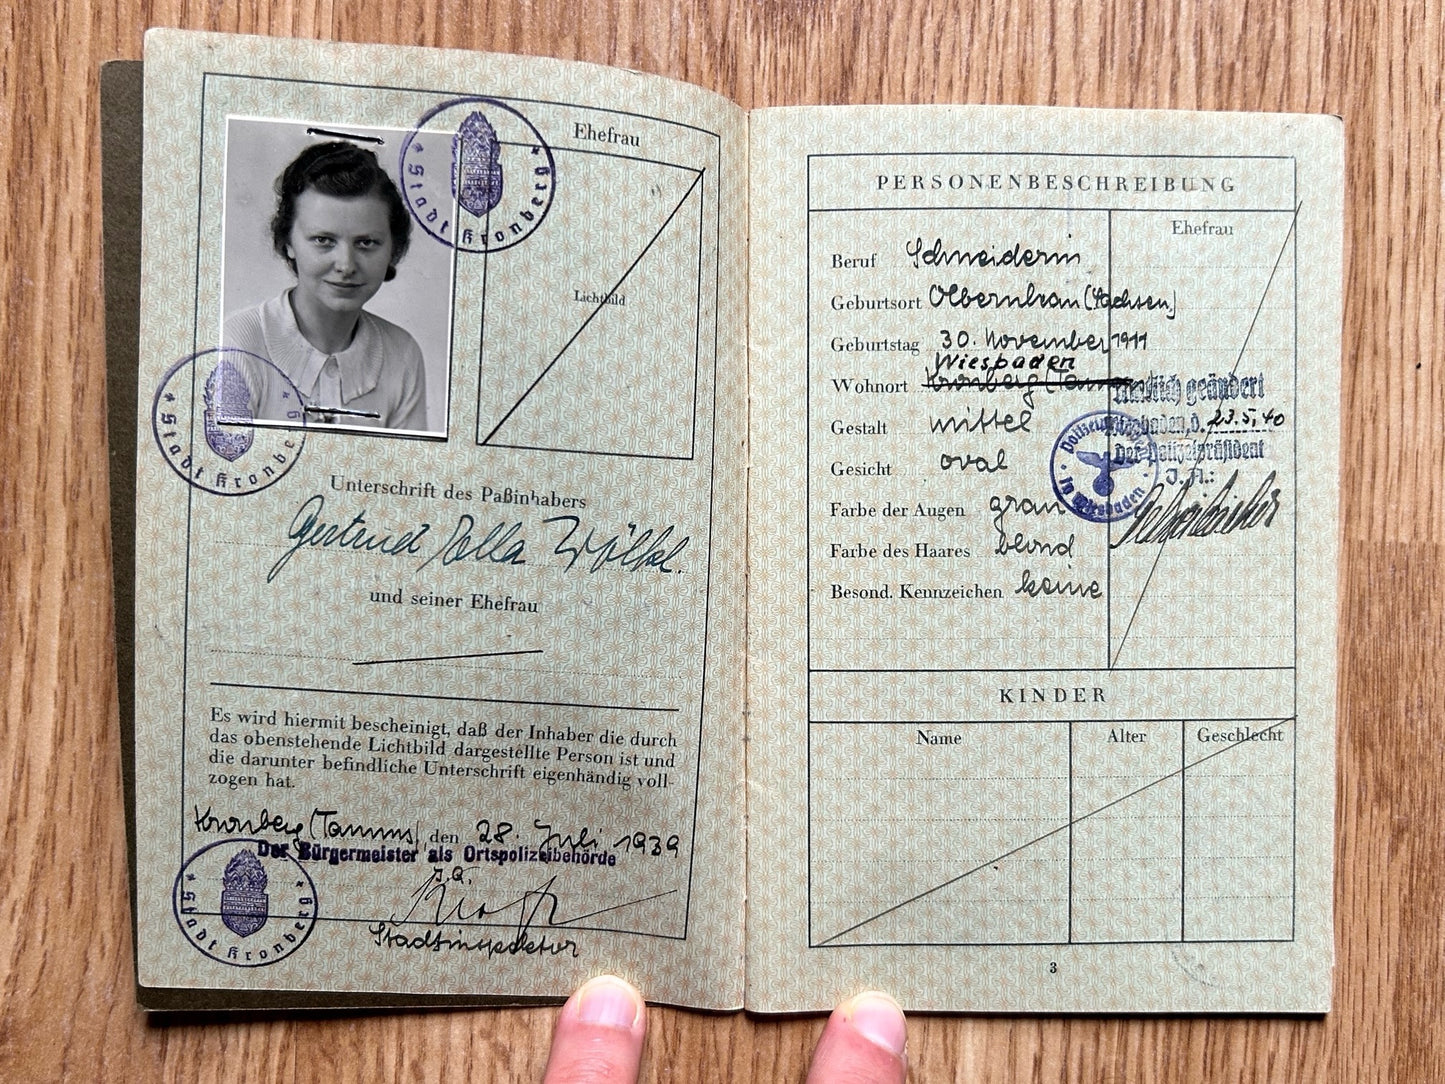 Ehefrau
Lichtbild
Stadt Kronberg
Stadt Kronberg
Unterschrift des Paßinhabers
Gertrud Ella Wölkel.
und seiner Ehefrau
Es wird hiermit bescheinigt, daß der Inhaber die durch
das obenstehende Lichtbild dargestellte Person ist und
die darunter befindliche Unterschrift eigenhändig voll-
zogen hat.
Kronberg (Taunus), den 28. Juli 1939
Der Bürgermeister als Ortspolizeibehörde
J. A.
Stadtinspektor
Stadt Kronberg
PERSONENBESCHREIBUNG
Ehefrau
Beruf Schneiderin
Geburtsort Olbernhau (Sachsen)
Geburtstag 30. November 1911
Wiesbaden
Wohnort Kronberg (Taunus)
Amtlich geändert
Gestalt mittel
Wiesbaden, d. 23.5.40
Der Polizeipräsident
Gesicht oval
J. A.:
in Wiesbaden
Farbe der Augen grau
Farbe des Haares blond
Besond. Kennzeichen keine
KINDER
Name Alter Geschlecht
3